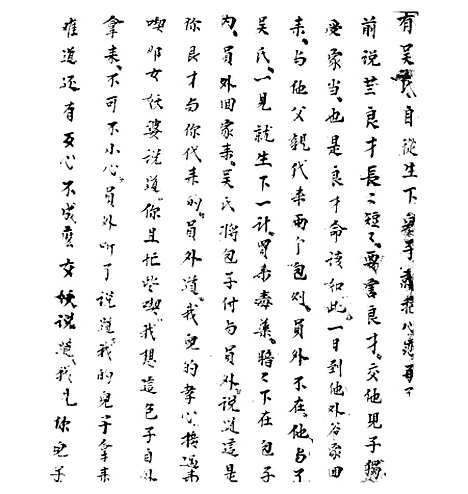 有吴氏自從生下
前说兰良才長二短之要害良才交他見子獨
受家当也是良才命该如此一日到他外爷家回
来与他父親代来两个包刘員外不在他与了
吴氏一見就生下一计買来毒藥将之下在包子
内員外回家来吴氏将包子付与員外说道這是
你良才与你代来的員外道我兒的孝心接过来
喫哪女妖婆说道你且忙些喫我想這包子自外
拿来不可下小心員外听了说道我的兒子拿来
难道还有歹心不成蓝交妖说道我見你兒子